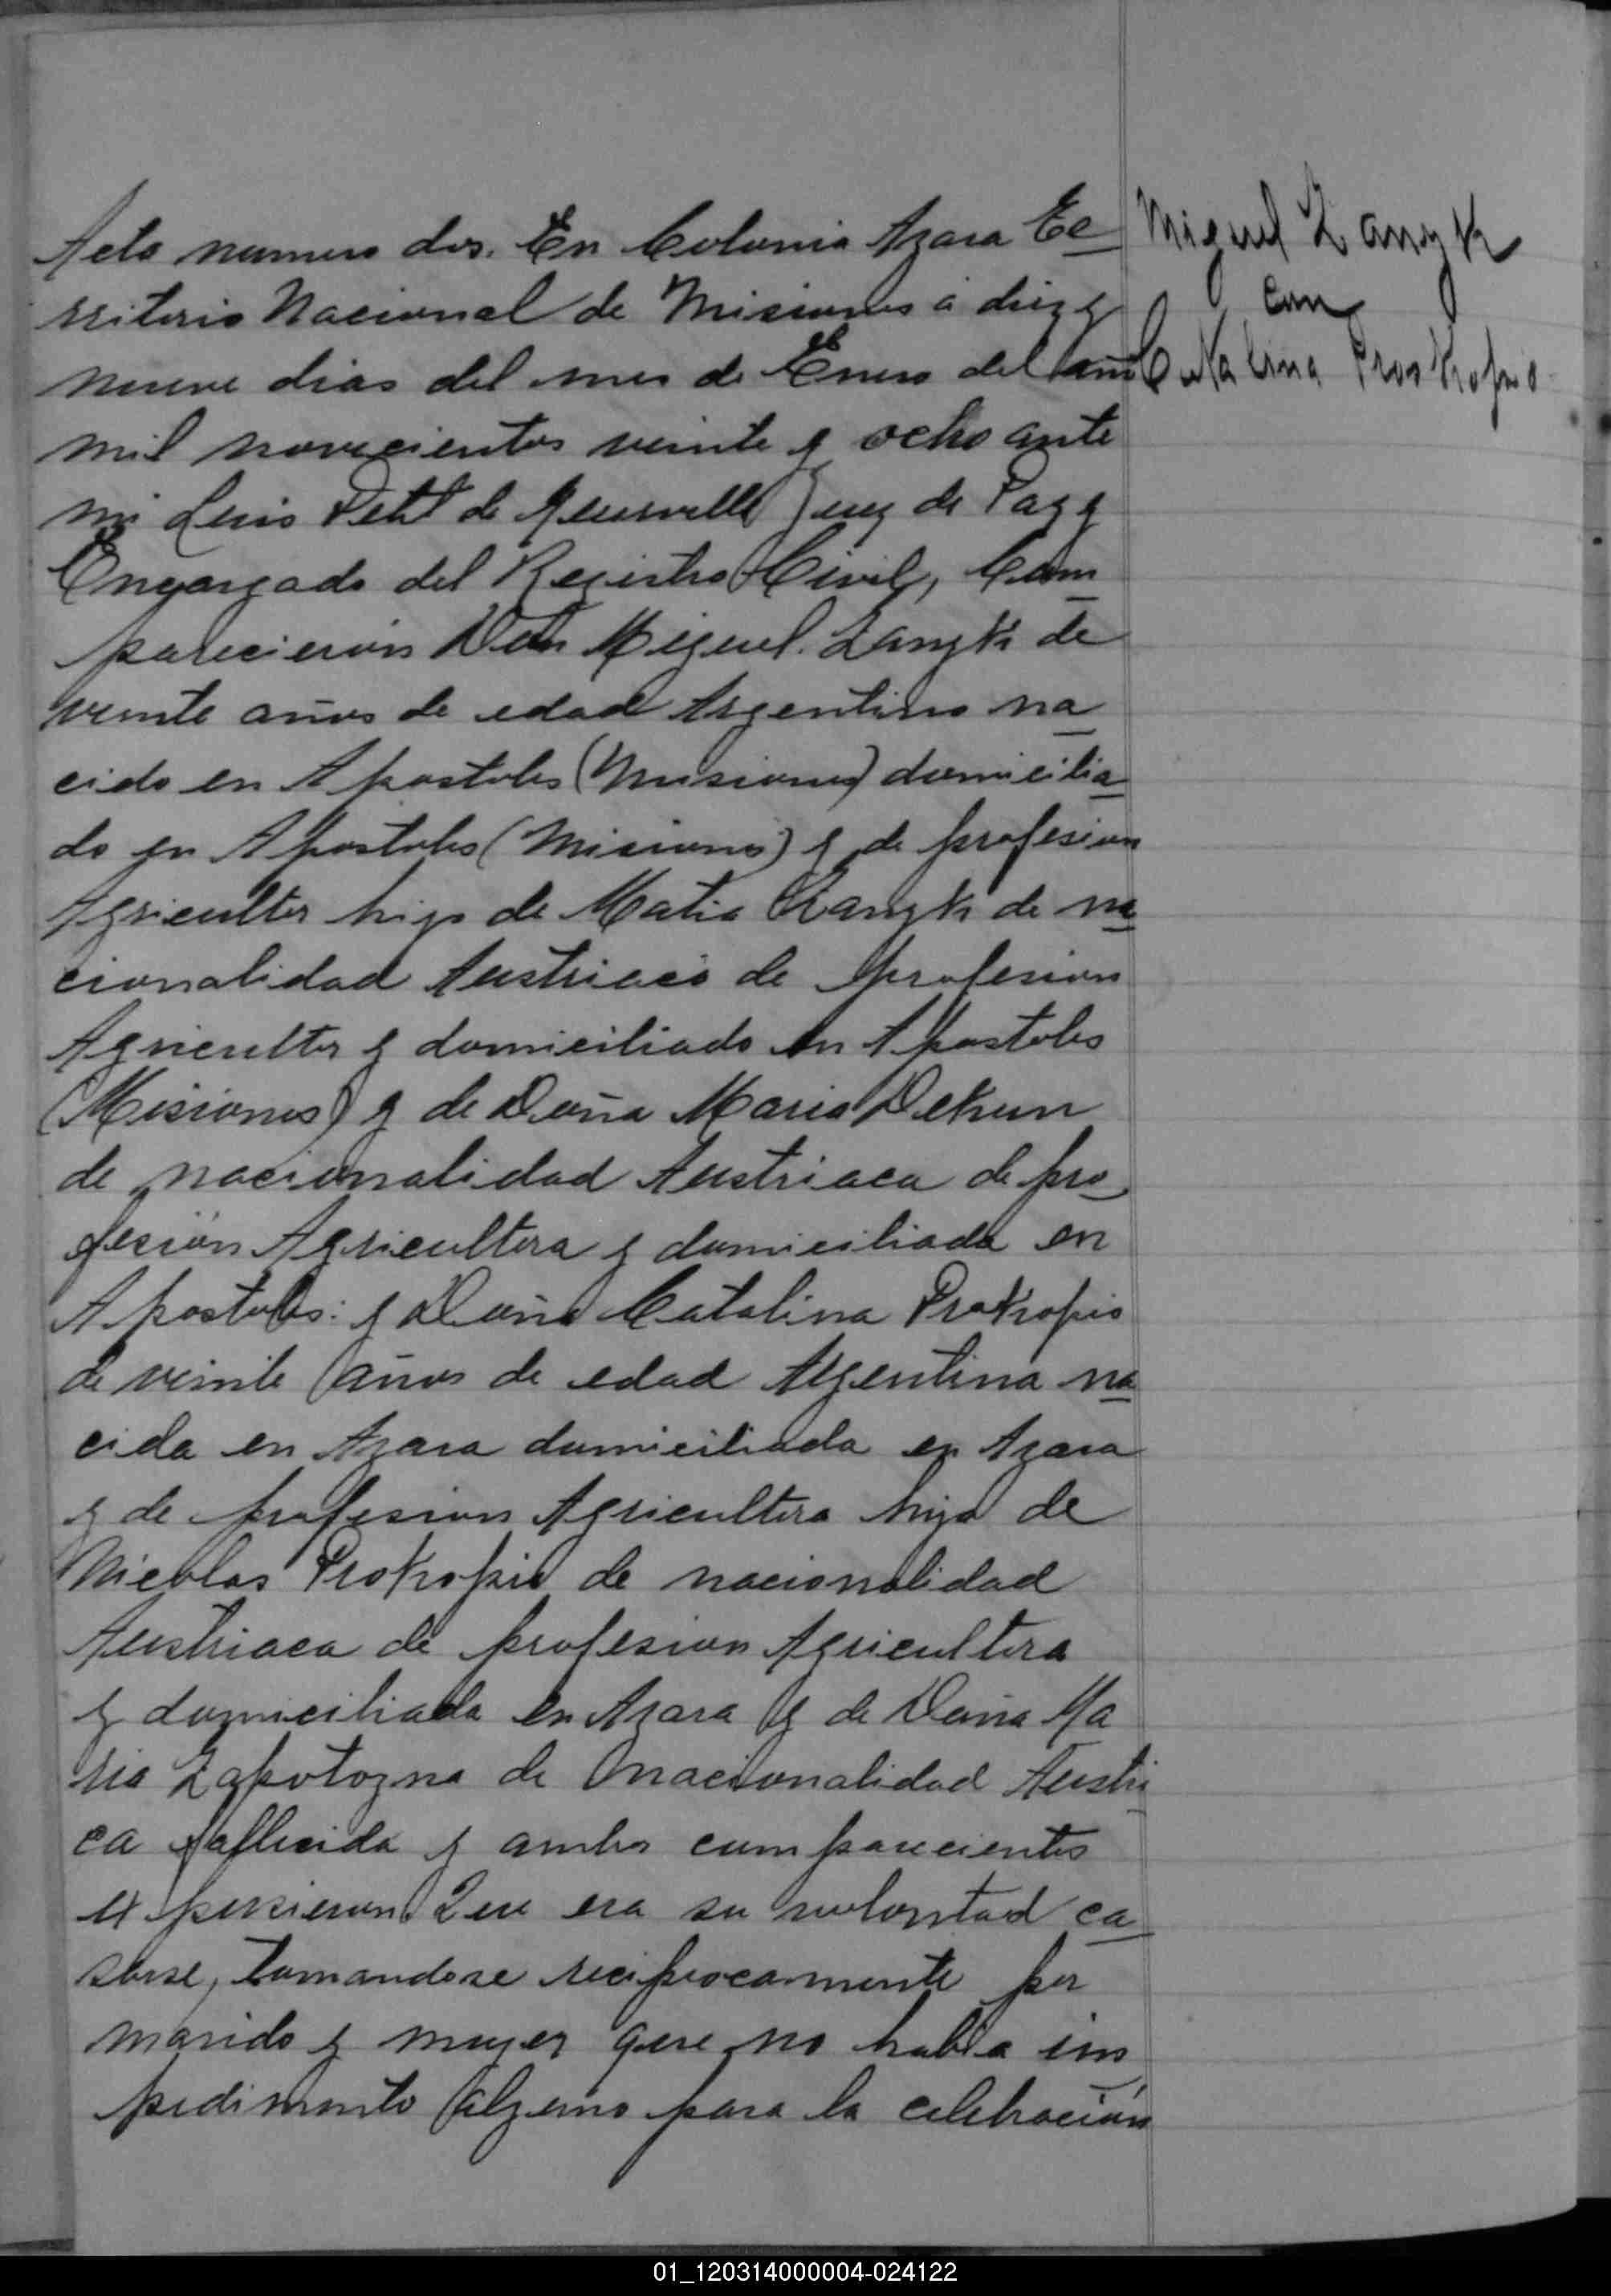 Acta numero dos. En Colonia Azara Te
rritorio Nacional de Misiones á diez y
nueve dias del mes de Enero del año
mil novecientos veinte y ocho ante
mi Luis Petit de Meurville Juez de Paz y
Encargado del Registro Civil, Com
parecieron Don Miguel Zanyk de
veinte años de edad Argentino na
cido en Apostoles (Misiones) domicilia
do en Apostoles (Misiones) y de profesion
Agricultor hijo de Matia Zanyk de na
cionalidad Austriaco de profesion
Agricultor y domiciliado en Apostoles
(Misiones) y de Doña Maria Dekun
de nacionalidad Austriaca de pro
fesión Agricultora y domiciliada en
Apostoles: y Doña Catalina Prokopio
de veinte años de edad Argentina na
cida en Azara domiciliada en Azara
y de profesion Agricultora hija de
Nicolas Prokopio de nacionalidad
Austriaca de profesion Agricultora
y domiciliada en Azara y de Doña Ma
ria Zapotozna de nacionalidad Austri
ca fallecida y ambos comparecientes
expusieron. Que era su voluntad ca
sarse, tomandose reciprocamente por
marido y mujer que no habia im
pedimento alguno para la celebración
Miguel Zanyk
con
Catalina Proskopio
01_120314000004-024122